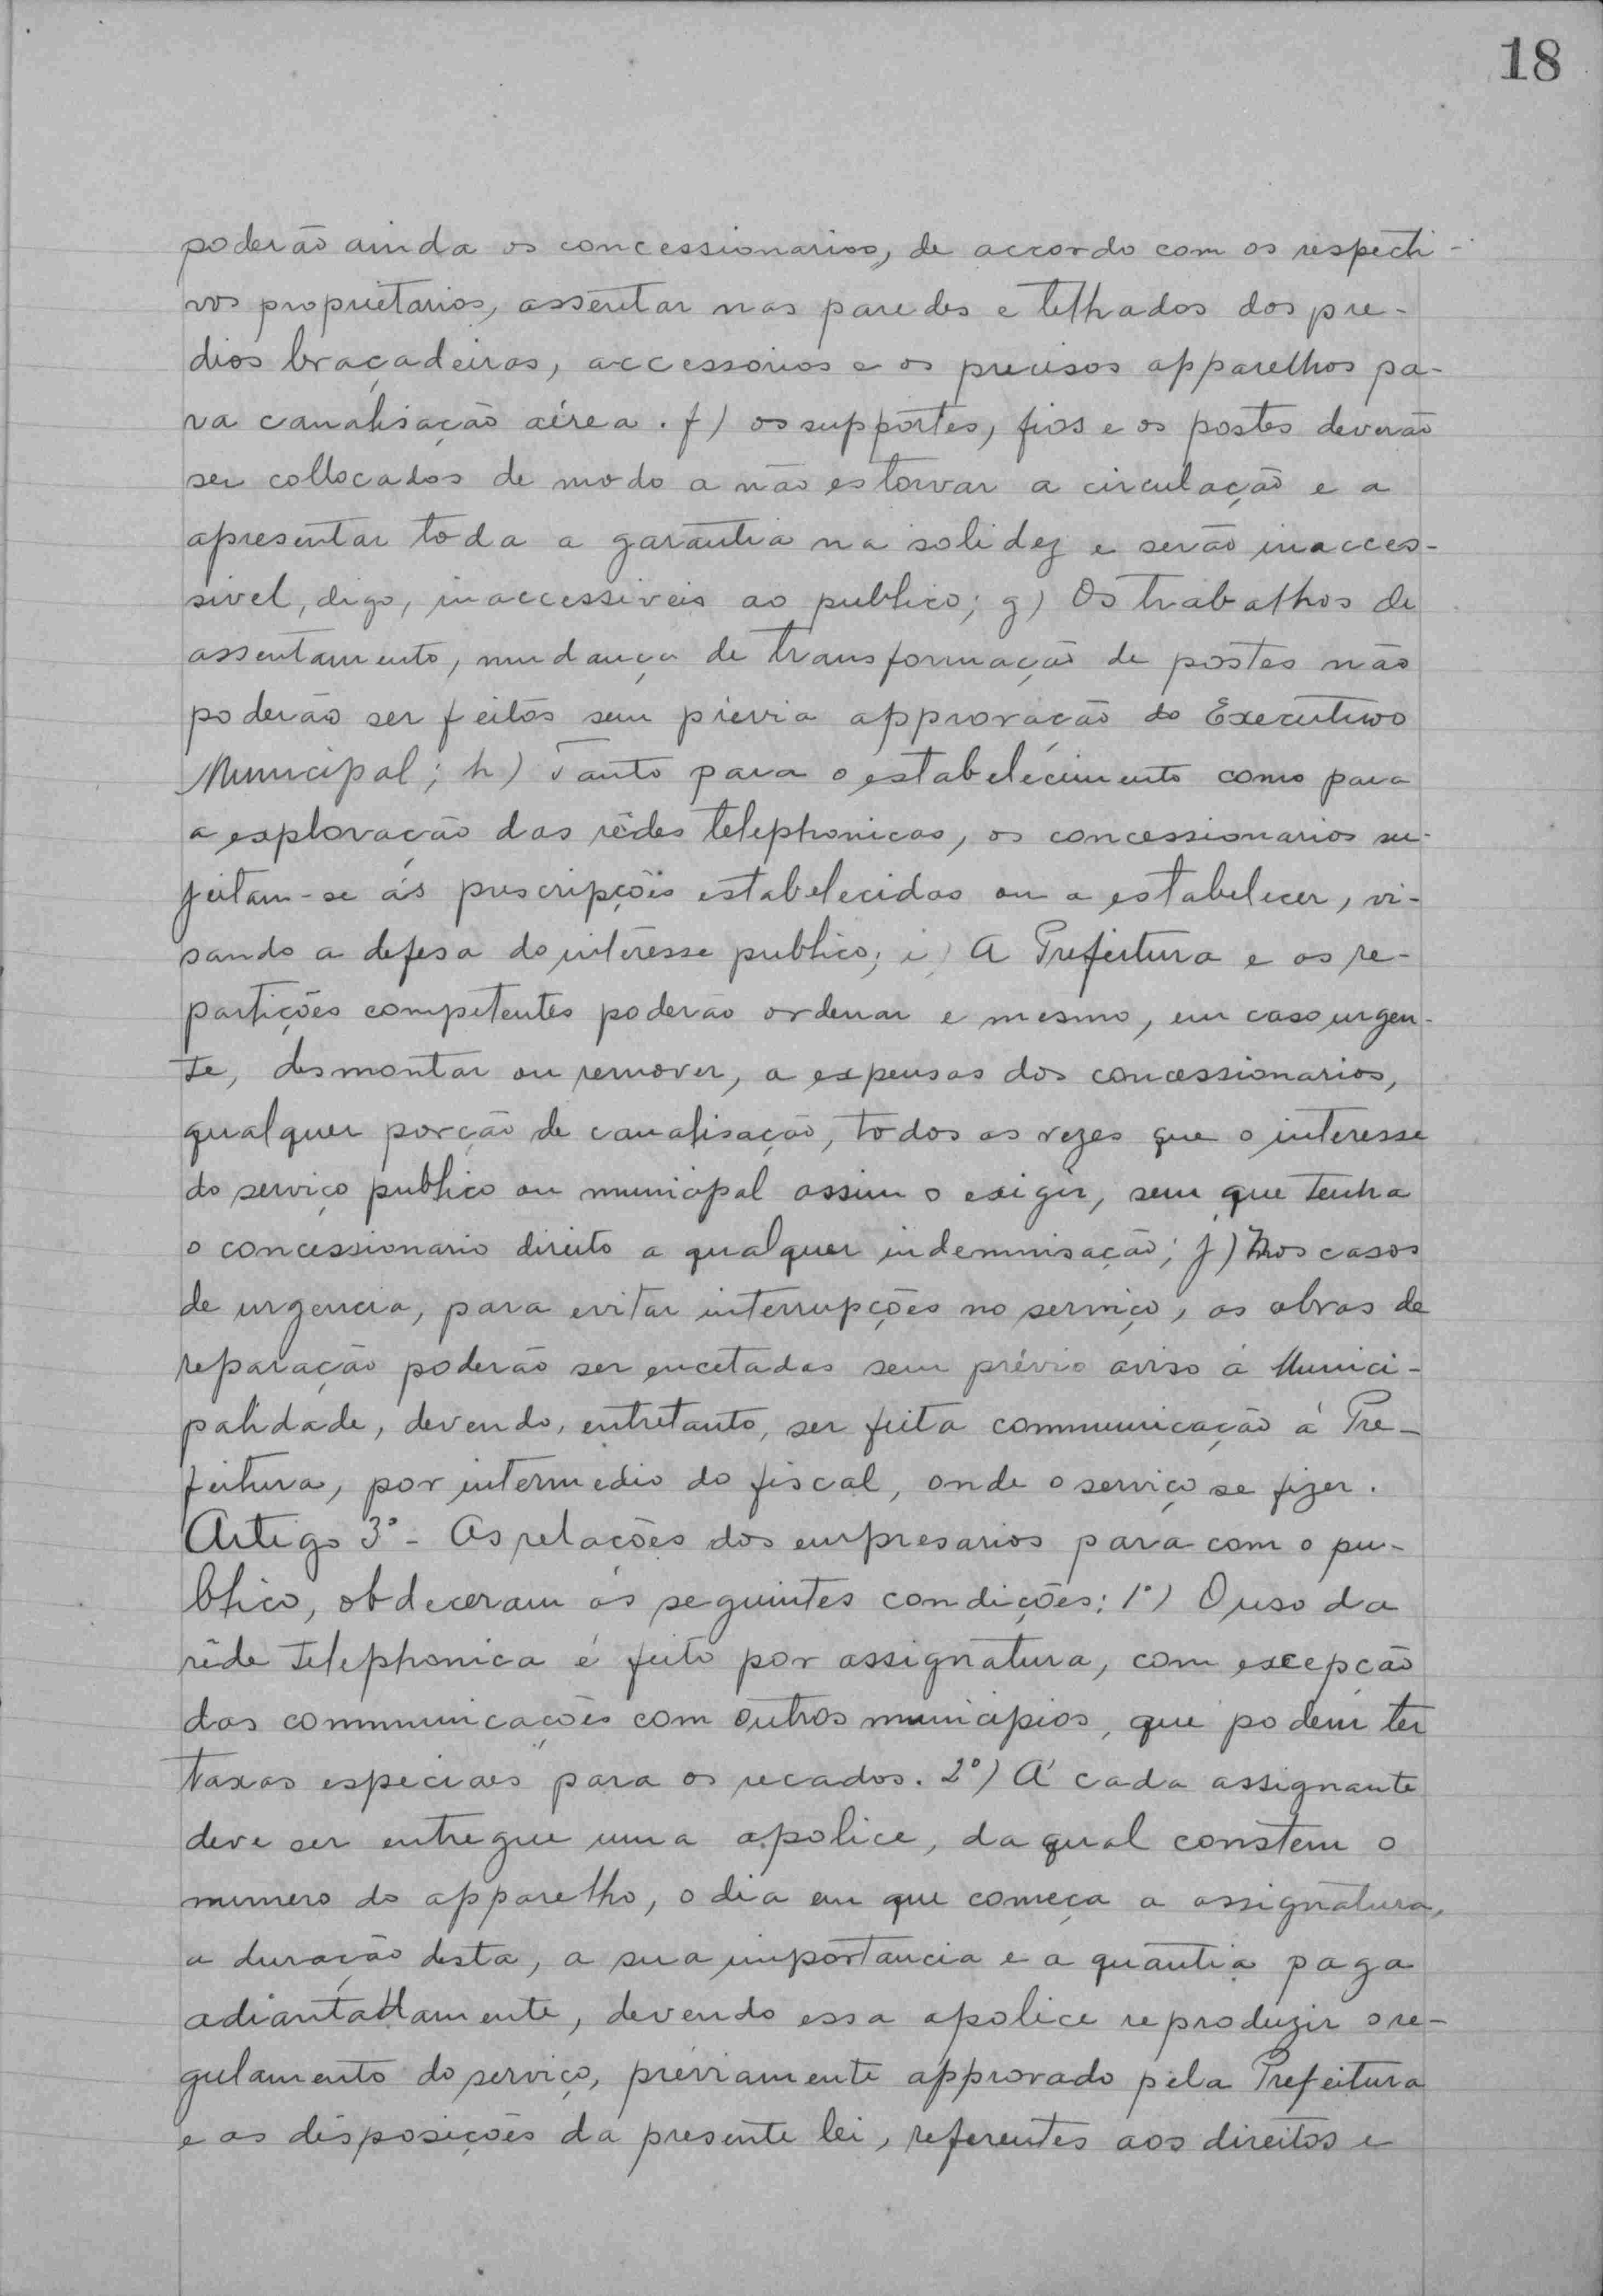 18
poderão ainda os concessionarios, de accordo com os respecti-
vos proprietarios, assentar nas paredes e telhados dos pre-
dios braçadeiras, accessorios e os precisos apparelhos pa-
ra canalisação aérea. f) os supportes, fios e os postes deverão
ser collocados de modo a não estorvar a circulação e a
apresentar toda a garantia na solidez e serão inacces-
sivel, digo, inaccessiveis ao publico; g) Os trabalhos de
assentamento, mudança de transformação de postes não
poderão ser feitos sem prévia approvacão do Executivo
Municipal; h) Tanto para o estabelecimento como para
a exploração das rêdes telephonicas, os concessionarios su-
jeitam-se ás prescripções estabelecidas ou a estabelecer, vi-
sando a defesa do interesse publico; i) A Prefeitura e as re-
partições competentes poderão ordenar e mesmo, em caso urgen-
te, desmontar ou remover, a expensas dos concessionarios,
qualquer porção de canalisação, todas as vezes que o interesse
do serviço publico ou municipal assim o exigir, sem que tenha
o concessionario direito a qualquer indemnisação; j) Nos casos
de urgencia, para evitar interrupções no serviço, as obras de
reparação poderão ser encetadas sem prévio aviso á Munici-
palidade, devendo, entretanto, ser feita communicação á Pre-
feitura, por intermedio do fiscal, onde o serviço se fizer.
Artigo 3º - As relacões dos empresarios para com o pu-
blico, obdeceram ás seguintes condições: 1º) O uso da
rêde telephonica é feito por assignatura, com excepcão
das communicações com outros municipios, que podem ter
taxas especiaes para os recados. 2º) A' cada assignante
deve ser entregue uma apolice, da qual constem o
numero do apparelho, o dia em que começa a assignatura,
a duração desta, a sua importancia e a quantia paga
adiantadamente, devendo essa apolice reproduzir o re-
gulamento do serviço, préviamente approvado pela Prefeitura
e as disposições da presente lei, referentes aos direitos e